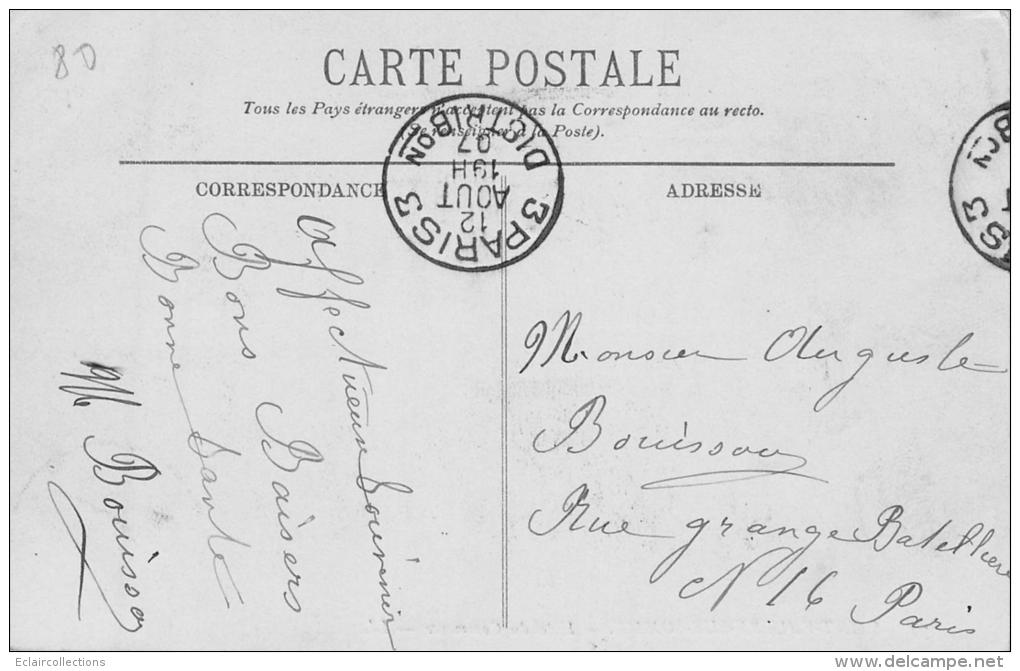 80
CARTE POSTALE
Tous les Pays étrangers n'acceptent pas la Correspondance au recto.
(Se renseigner à la Poste).
CORRESPONDANCE
ADRESSE
PARIS 3
12
AOUT
19H
07
DISTRIBON
Affectueux Souvenir
Bons Baisers
Bonne Santé
M Bouisson
Monsieur Auguste
Bouissou
Rue grange Batellière
N 16
Paris
Eclaircollections
delcampe.net